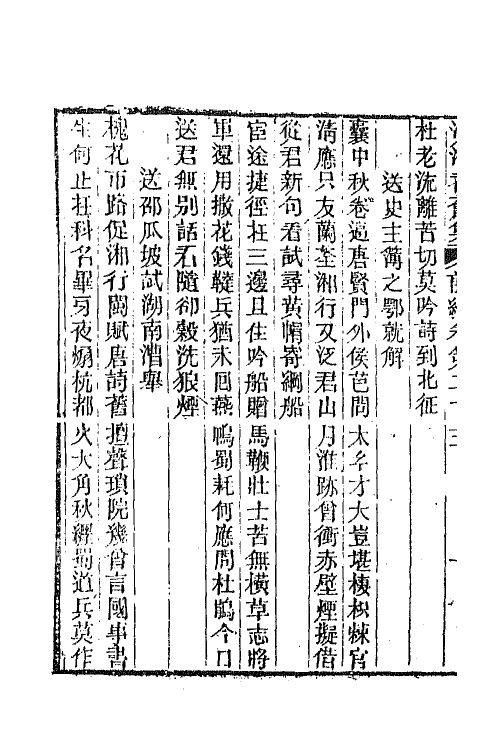 杜老流離苦切莫吟詩到北征
送史主簿之鄂就解
囊中秋卷逼唐賢門外侯芭問太玄才大豈堪棲枳棘官
清應只友蘭荃湘行又泛君山月淮跡曾衝赤壁煙擬借
從君新句看試尋黃帽寄綱船
宦途捷徑在三邊且住吟船贈馬鞭壯士苦無橫草志將
軍還用撒花錢韃兵猶未回燕鳴蜀耗何應問杜鵑今日
送君無別話不隨卻縠洗狼煙
送邵瓜坡試湖南漕舉
槐花市路促湘行闈賦唐詩舊擅聲瑣院幾曾言國事書
生何止在科名畢弓夜㷍杭都火大角秋纒蜀道兵莫作